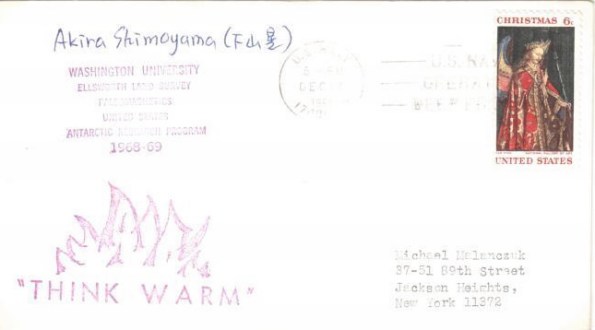 Akira Shimoyama (下山晃)
WASHINGTON UNIVERSITY
ELLSWORTH LAND SURVEY
UNITED STATES
ANTARCTIC RESEARCH PROGRAM
1968-69
DEC
U.S. NAVY
CHRISTMAS 6c
UNITED STATES
"THINK WARM"
Michael Melanczuk
37-51 89th Street
Jackson Heights,
New York 11372